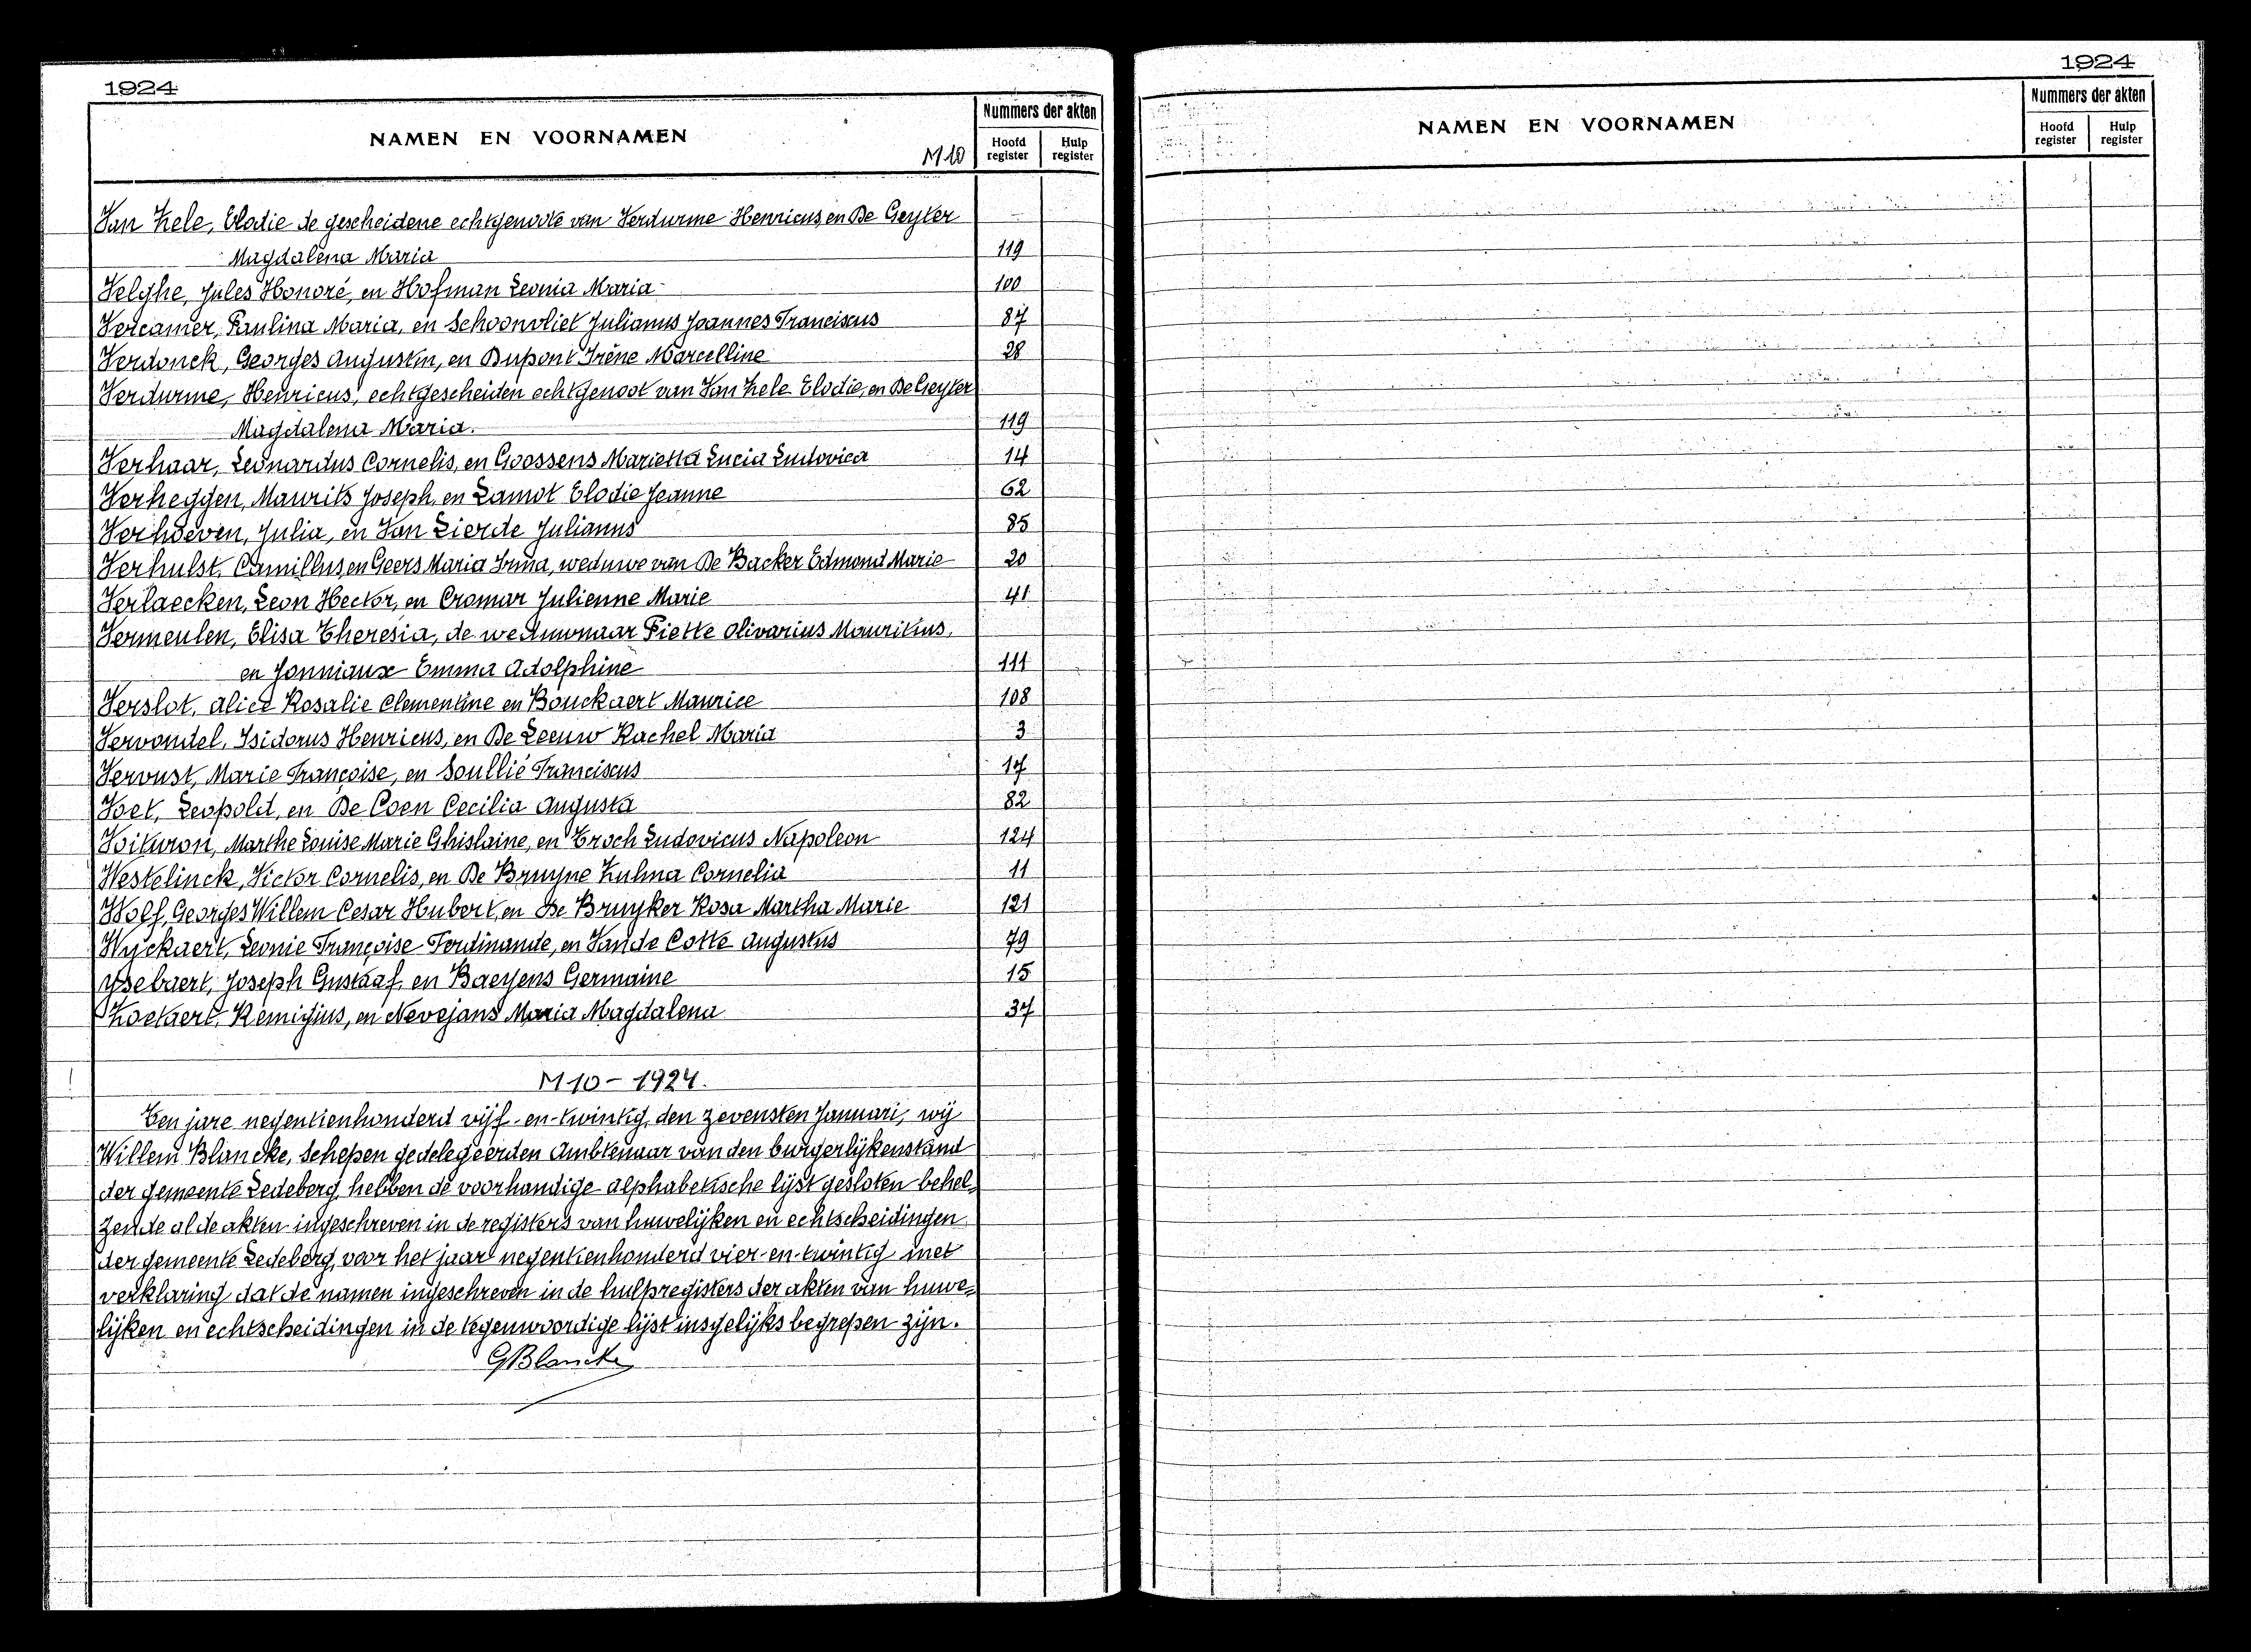 1924
NAMEN EN VOORNAMEN
M10
Nummers der akten
Hoofd register
Hulp register
Van Hele, Elodie de gescheidene echtgenoote van Verdurme Henricus, en De Geyter
Magdalena Maria 119
Velghe, Jules Honoré, en Hofman Leonia Maria 100
Vercamer, Paulina Maria, en Schoonvliet Julianus Joannes Franciscus 87
Verdonck, Georges Augustin, en Dupont Irène Marcelline 28
Verdurme, Henricus, echtgescheiden echtgenoot van Van Hele Elodie, en De Geyter
Magdalena Maria. 119
Verhaar, Leonardus Cornelis, en Goossens Marietta Lucia Ludovica 14
Verheggen, Maurits Joseph, en Lamot Elodie Jeanne 62
Verhoeven, Julia, en Van Lierde Julianus 85
Verhulst, Camillus, en Geers Maria Irma, weduwe van De Backer Edmond Marie 20
Verlaecken, Leon Hector, en Cromar Julienne Marie 41
Vermeulen, Elisa Theresia, de weduwnaar Piette Olivarius Mauritius,
en Jonniaux Emma Adolphine 111
Verslot, Alice Rosalie Clementine en Bouckaert Maurice 108
Vervondel, Isidorus Henricus, en De Leeuw Rachel Maria 3
Vervust, Marie Françoise, en Soullié Franciscus 17
Voet, Leopold, en De Coen Cecilia Augusta 82
Voituron, Marthe Louise Marie Ghislaine, en Troch Ludovicus Napoleon 124
Westelinck, Victor Cornelis, en De Bruyne Zulma Cornelia 11
Wolf, Georges Willem Cesar Hubert, en De Bruyker Rosa Martha Marie 121
Wyckaert, Leonie Françoise Ferdinande, en Van de Cotte Augustus 79
Ysebaert, Joseph Gustaaf, en Baeyens Germaine 15
Zoetaert, Remigius, en Nevejans Maria Magdalena 37
M10 - 1924.
Ten jare negentienhonderd vijf-en-twintig, den zevensten Januari, wij
Willem Blancke, Schepen gedelegeerden Ambtenaar van den burgerlijkenstand
der gemeente Ledeberg, hebben de voorhandige alphabetische lijst gesloten behel-
zende al de akten ingeschreven in de registers van huwelijken en echtscheidingen
der gemeente Ledeberg, voor het jaar negentienhonderd vier-en-twintig met
verklaring dat de namen ingeschreven in de hulpregisters der akten van huwe-
lijken en echtscheidingen in de tegenwoordige lijst insgelijks begrepen zijn.
GBlancke
1924
NAMEN EN VOORNAMEN
Nummers der akten
Hoofd register
Hulp register